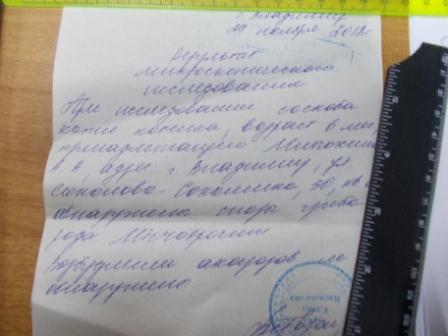 г. Владимир
29 ноября 2012г
Результат
микроскопического
исследования
При исследовании соскоба
кожи котенка, возраст 2 мес,
принадлежащего
А.А, адрес г. Владимир, ул.
Соколова-Соколенка, 30, кв.
обнаружены споры гриба
рода Microsporum
Возбудители акарозов не
обнаружены